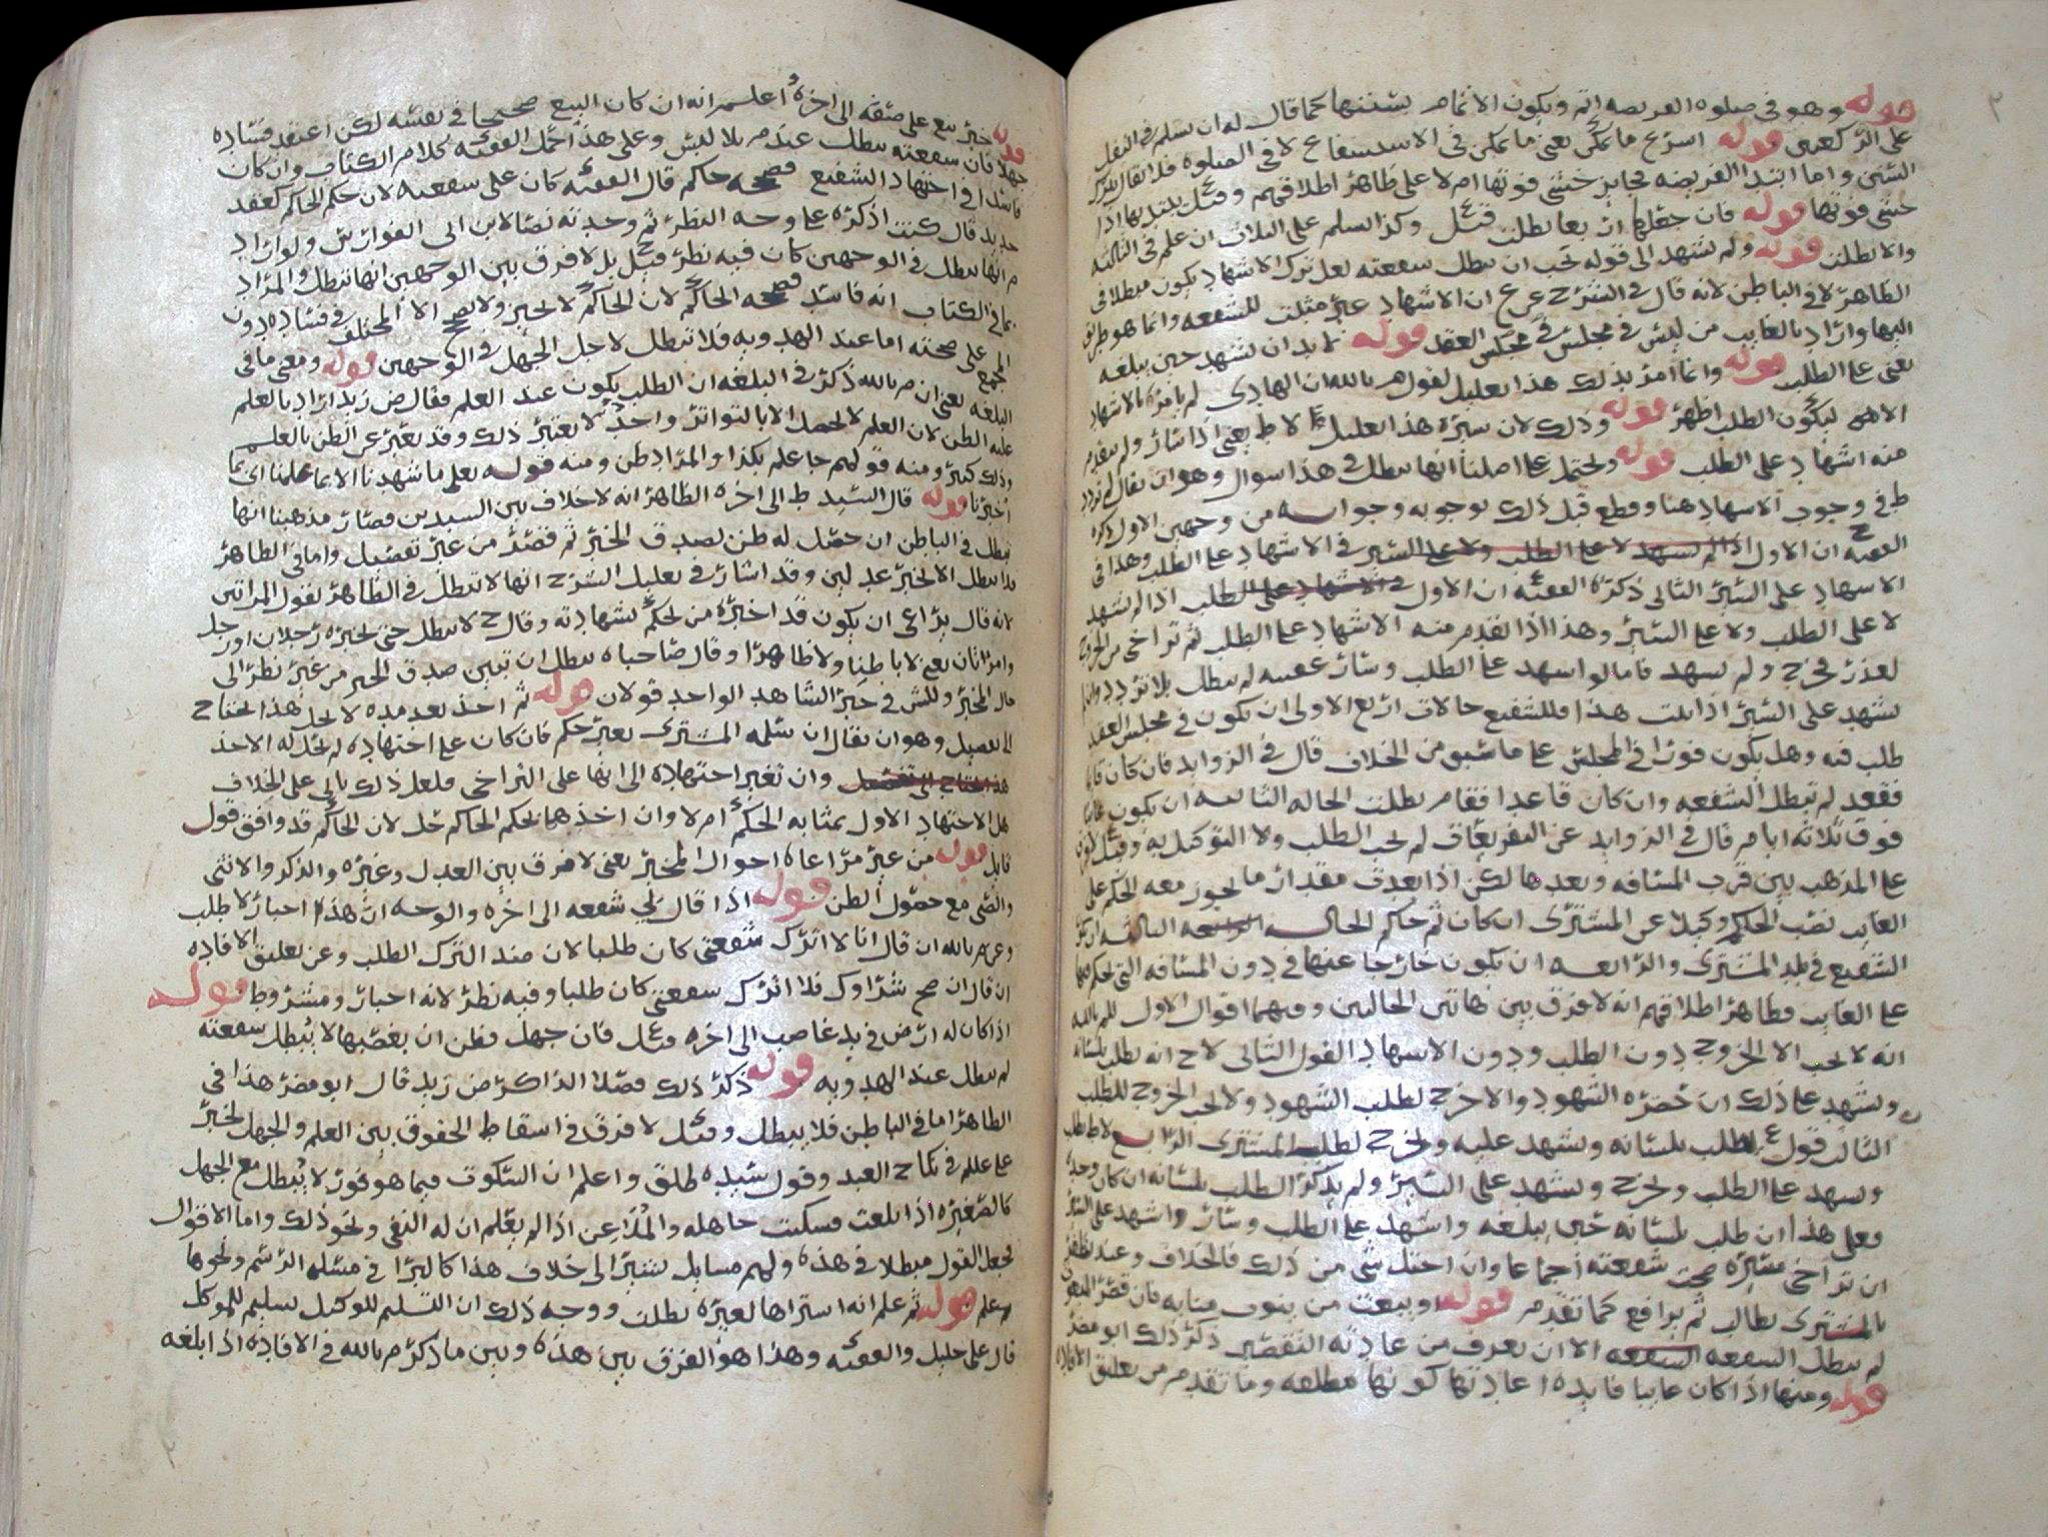 قوله وهو في صلوه الفريضه اتم ويكون الاتمام بسننها كما قال له ان يسلم في النفل
على الركعتين قوله اسرع ما يمكن يعني ما يمكن في الاستشفاع لا في الصلوه فلا يقال يترك
السنن واما ابتدا الفريضه فجايز خشي فوتها ام لا على ظاهر اطلاقهم وقيل يبتديها اذا
خشي فوتها قوله فان جعلها اربعا بطلت قيل وكذا السلم على الثلاث ان علم في الثالثه
والا بطلت قوله ولم يشهد الى قوله يجب ان تبطل شفعته لعل ترك الاشهاد يكون مبطلا في
الظاهر لا في الباطن لانه قال في الشرح عن ع ان الاشهاد غير مثبت للشفعه وانما هو طريق
اليها واراد بالغايب من ليس في مجلس في مجلس العقد قوله لا بد ان يشهد حين يبلغه
يعني على الطلب قوله وانما امر بذلك هذا تعليل لقول م بالله ان الهادي لم يامره بالاشهاد
الا ليكون الطلب اظهر قوله وذلك لان سيره هذا تعليل لا ط يعني اذا سار ولم يتقدم
منه اشهاد على الطلب قوله ويحتمل على اصلنا انها تبطل في هذا سوال وهو ان يقال لم تردد
ط في وجوب الاشهاد هنا وقطع قبل ذلك بوجوبه وجوابه من وجهين الاول ذكره
الفقيه ح ان الاول اذا لم يشهد لا على الطلب ولا على السير في الاشهاد على الطلب وهذا في
الاشهاد على السير الثاني ذكره الفقيه ع ان الاول في الاشهاد على الطلب اذا لم يشهد
لا على الطلب ولا على السير وهذا اذا تقدم منه الاشهاد على الطلب ثم تراخى من الخروج
لعذر فخرج ولم يشهد فاما لو اشهد على الطلب وسار عقيبه لم تبطل بلا تردد وان لم
يشهد على السير اذا ثبت هذا فللشفيع حالات اربع الاولى ان يكون في مجلس العقد
طلب فيه وهل يكون فورا في المجلس على ما سبق من الخلاف قال في الزوايد فان كان قايما
فقعد لم تبطل الشفعه وان كان قاعدا فقام بطلت الحاله الثانيه ان يكون غايبا
فوق ثلاثه ايام قال في الزوايد عن التفريعات لم يجب الطلب ولا التوكيل به وقيل
على المذهب بين قرب المسافه وبعدها لكن اذا بعدت مقدار ما يجوز معه الحكم على
الغايب نصب الحاكم وكيلا عن المشتري ان كان ثم حاكم الحاله الرابعه الثالثه ان يكون
الشفيع في بلد المشتري والرابعه ان يكون خارجا عنها في دون المسافه التي يحكم فيها
على الغايب فظاهر اطلاقهم انه لا فرق بين هاتين الحالتين وفيهما اقوال الاول للم بالله
انه لا يجب الا الخروج دون الطلب ودون الاشهاد القول الثاني لاح انه يطلب بلسانه
ويشهد على ذلك ان حضره الشهود والا خرج لطلب الشهود ولا يجب الخروج للطلب
الثالث قول ع يطلب بلسانه ويشهد عليه ويخرج لطلب المشتري الرابع لا ط يطلب
ويشهد على الطلب ويخرج ويشهد على السير ولم يذكر الطلب بلسانه ان كان وحده
وعلى هذا ان طلب بلسانه حين يبلغه واشهد على الطلب وسار واشهد على السير
ان تراخى مسيره صحت شفعته اجماعا وان اختل شي من ذلك فالخلاف وعند يظفر
بالمشتري يطالب ثم يرافع كما تقدم قوله او يبعث من ينوب منابه فان قصر المبعوث
لم تبطل الشفعه الشفعه الا ان يعرف من عادته التقصير ذكر ذلك ابو مضر
قوله ومنها اذا كان غايبا فايده اعادتها كونها مطلقه وما تقدم من تعليق الافاده
قوله خبر بيع على صفه الى اخره اعلم انه ان كان البيع صحيحا في نفسه لكن اعتقد فساده
جهلا فان شفعته تبطل عند م بالله لا ليس وعلى هذا حمل الفقيه كلام الكتاب وان كان
فاسدا في اجتهاد الشفيع فصححه حاكم قال الفقيه كان على شفعته لان حكم الحاكم كعقد
جديد قال كنت اذكره على وجه النظر ثم وجدته نصا لابن ابي الفوارس ولو اراد
م انها تبطل في الوجهين كان فيه نظر وقيل ح بل لا فرق بين الوجهين انها تبطل والمراد
بما في الكتاب انه فاسد فصححه الحاكم لان الحاكم لا يجيز ولا يصحح الا المختلف في فساده دون
المجمع على صحته اما عند الهدويه فلا تبطل لاجل الجهل في الوجهين قوله ومعنى ما في
البلغه يعني ان م بالله ذكر في البلغه ان الطلب يكون عند العلم فقال ض زيد اراد بالعلم
غلبه الظن لان العلم لا يحصل الا بالتواتر واحد لا يعتبر ذلك وقد يعبر عن الظن بالعلم
وذلك كثير ومنه قولهم جا علم بكذا والمراد ظن ومنه قوله تعلى ما شهدنا الا بما علمنا اي بما
اخبرنا قوله قال السيد ط الى اخره الظاهر انه لا خلاف بين السيدين فصار مذهبنا انها
تبطل في الباطن ان حصل له ظن بصدق الخبر ثم قصر من غير تفصيل واما في الظاهر
فلا تبطل الا بخبر عدلين وقد اشار في تعليل الشرح انها لا تبطل في الظاهر بقول المراتين
لانه قال يراعى ان يكون قد اخبره من يحكم بشهادته وقال ح لا تبطل حتى يخبره رجلان او رجل
وامراتان يعني لا باطنا ولا ظاهرا وقال صاحباه تبطل ان تبين صدق الخبر من غير نظر الى
حال المخبر وللش في خبر الشاهد الواحد قولان قوله ثم اخذ بعد مده لا يحل هذا يحتاج
الى تفصيل وهو ان يقال ان سلمه المشتري بغير حكم فان كان على اجتهاده لم يحل له الاخذ
هذا يحتاج الى تفصيل وان تغير اجتهاده الى انها على التراخي فلعل ذلك ياتي على الخلاف
هل الاجتهاد الاول بمثابه الحكم ام لا وان اخذها بحكم الحاكم حل لان الحاكم قد وافق قول
قايل قوله من غير مراعاه احوال المخبر يعني لا فرق بين العدل وغيره والذكر والانثى
والصبي مع حصول الظن قوله اذا قال لي شفعه الى اخره والوجه ان هذا اخبار لا طلب
وعن م بالله ان قال انا لا اترك شفعتي كان طلبا لان ضد الترك الطلب وعن تعليق الافاده
ان قال ان صح شراوك فلا اترك شفعتي كان طلبا وفيه نظر لانه اخبار ومشروط قوله
اذا كان له ارض في يد غاصب الى اخره قيل ع فان جهل فظن ان بغصبها لا تبطل شفعته
لم تبطل عند الهدويه قوله ذكر ذلك فصلا الذاكر ض زيد قال ابو مضر هذا في
الظاهر اما في الباطن فلا تبطل وقيل لا فرق في اسقاط الحقوق بين العلم والجهل يخير
على علم في نكاح العبد وقول سيده طلق واعلم ان السكوت فيما هو فور لا يبطل مع الجهل
كالصغيره اذا بلغت فسكتت جاهله والملاعن اذا لم يعلم ان له النفي ونحو ذلك واما الاقوال
فجعل القول مبطلا في هذه ولهم مسايل تشير الى خلاف هذا كالبرا في مسئله الرسم ونحوها
قوله ثم علم انه اشتراها لغيره بطلت ووجه ذلك ان التسليم للوكيل تسليم للموكل
قال علي خليل والفقيه وهذا هو الفرق بين هذه وبين ما ذكره م بالله في الافاده اذا بلغه